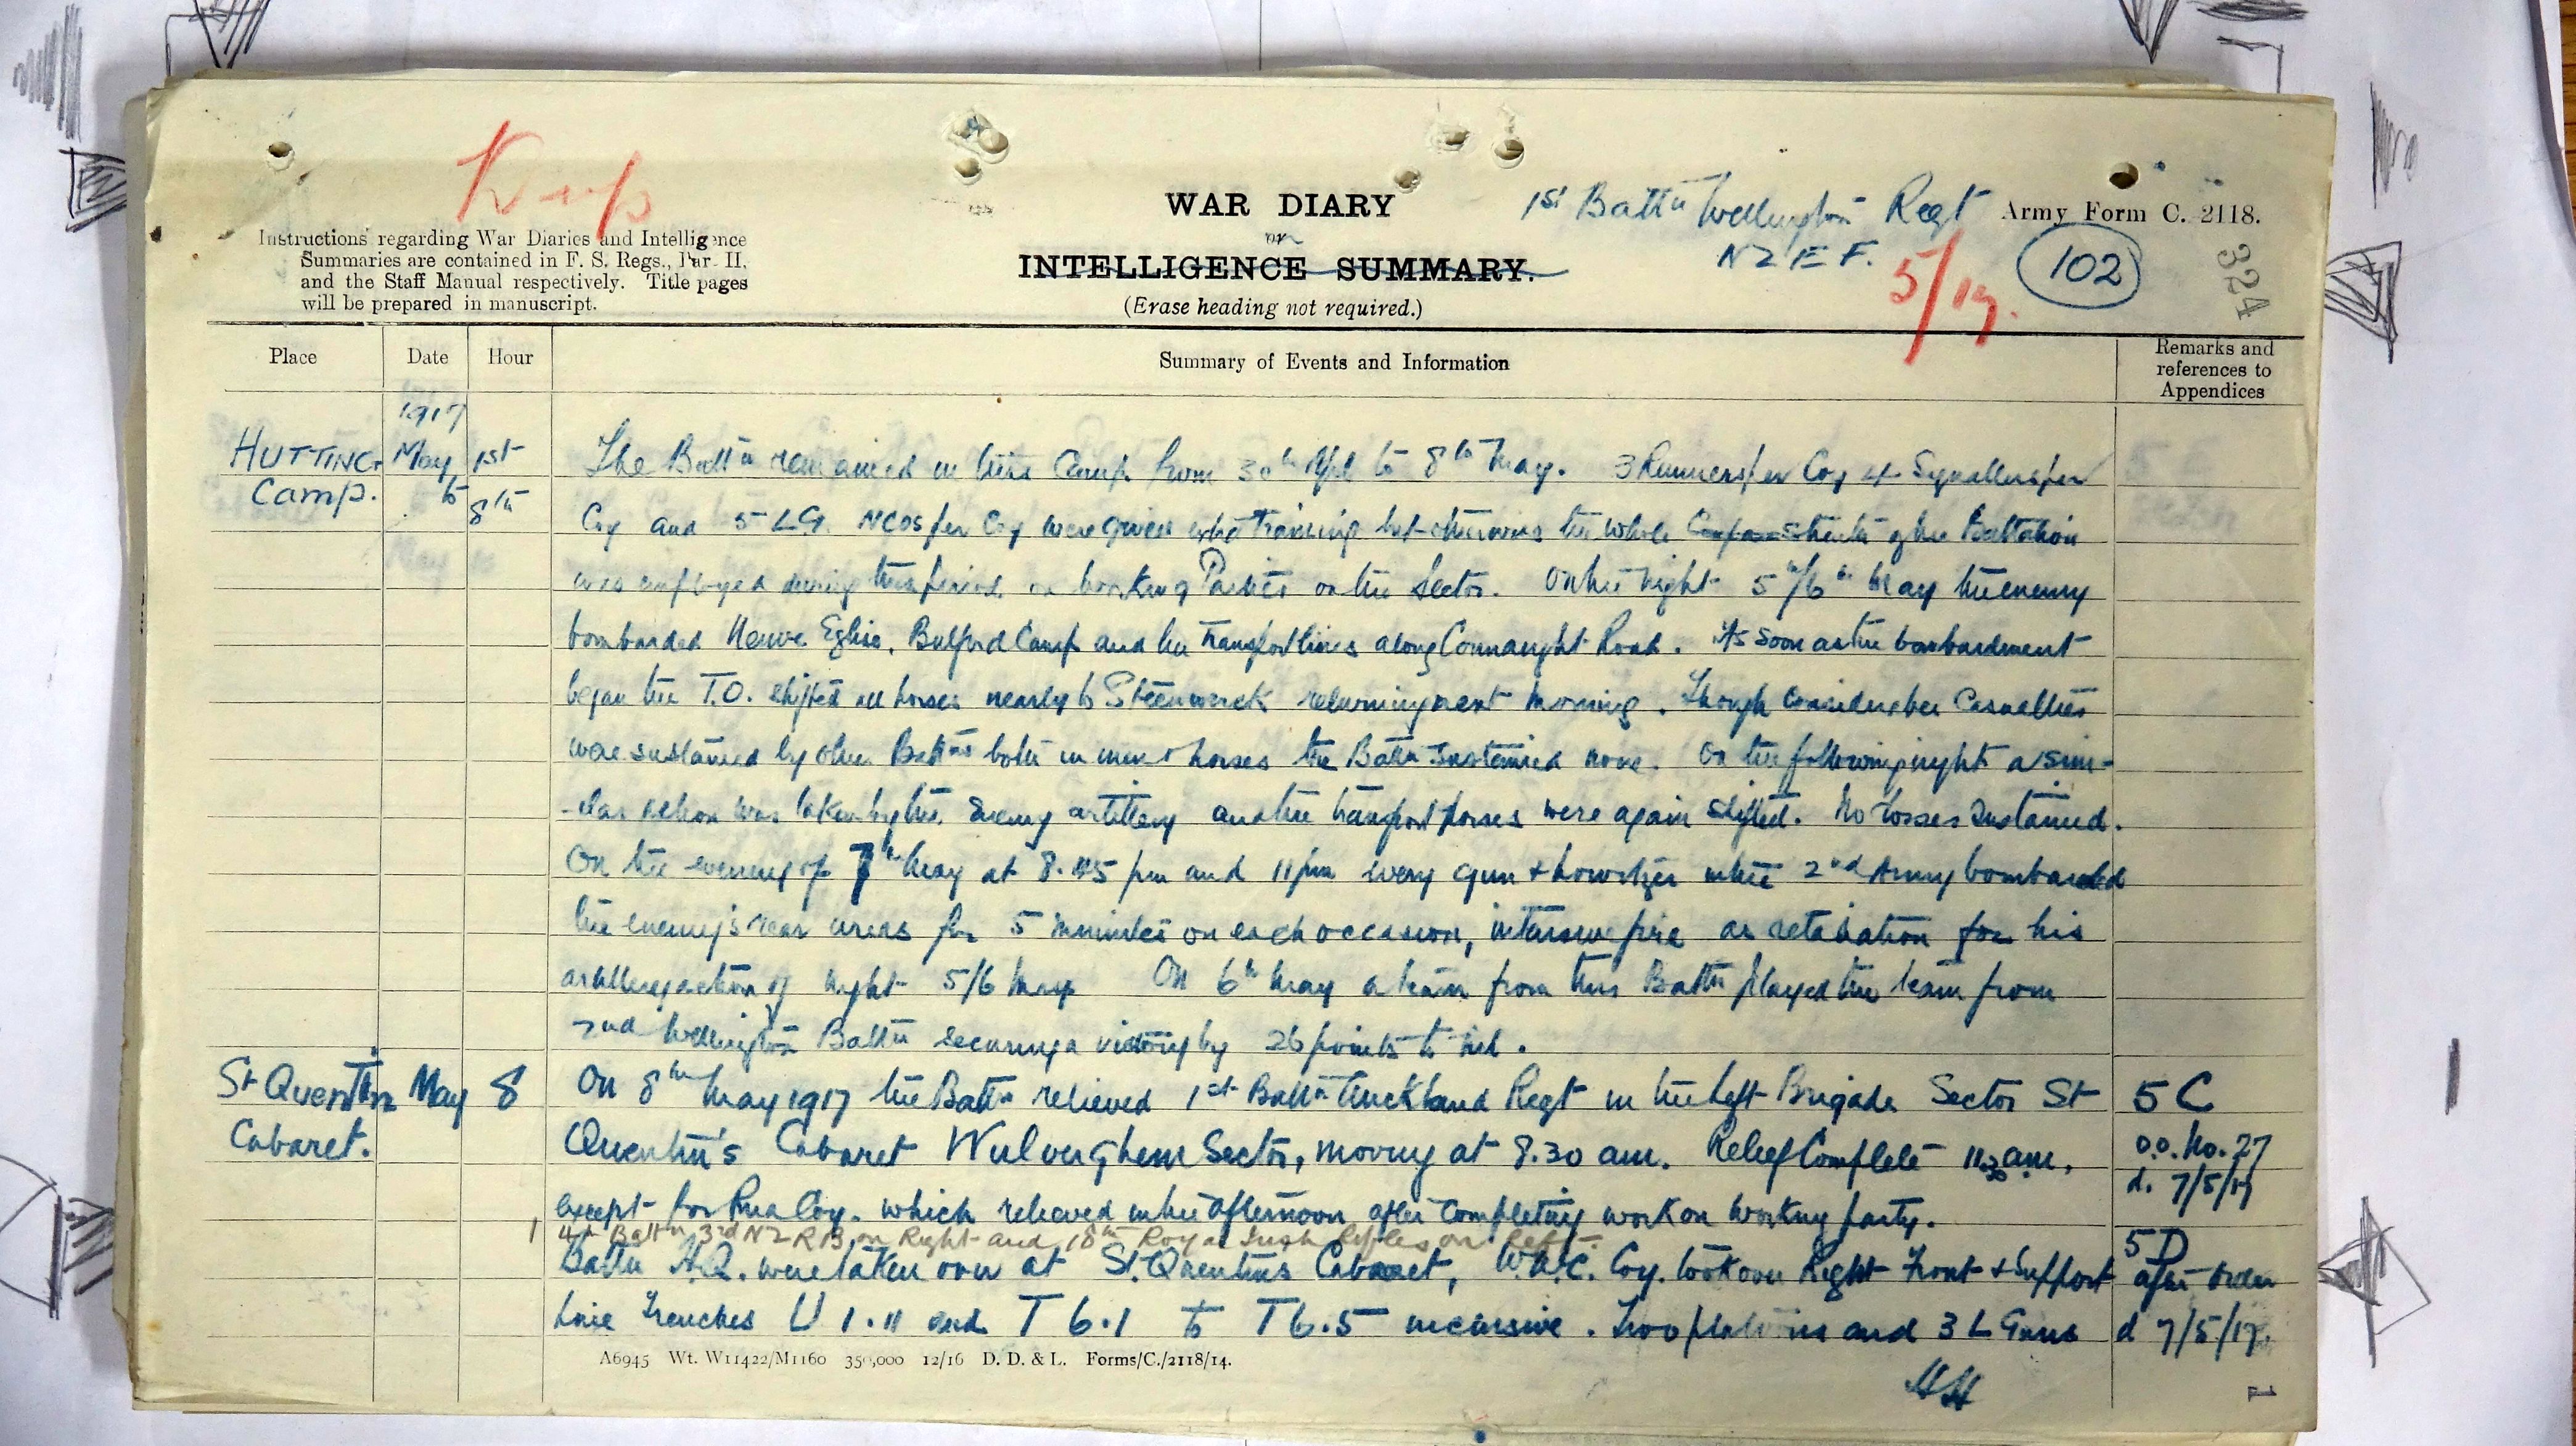 Keep
Instructions regarding War Diaries and Intelligence
Summaries are contained in F. S. Regs., Part II.
and the Staff Manual respectively. Title pages
will be prepared in manuscript.
WAR DIARY
or
INTELLIGENCE SUMMARY.
(Erase heading not required.)
1st Battn Wellington Regt
NZEF.
Army Form C. 2118.
5/17.
102
324
Place
Date
Hour
Summary of Events and Information
Remarks and
references to
Appendices
1917
HUTTING May 1st
Camp. to 8th
The Battn remained in this Camp from 30th Apl to 8th May. 3 Runners per Coy 4 Signallers per
Coy and 5 L.G. NCOs per Coy were given training but otherwise the whole strength of the Battalion
was employed during this period on Working Parties on the Sector. On the night 5th/6th May the enemy
bombarded Neuve Eglise, Bulford Camp and the transport lines along Connaught Road. As soon as the bombardment
began the T.O. shifted all horses nearly to Steenwerck returning next morning. Though considerable Casualties
were sustained by other Battns both in men & horses the Battn sustained none. On the following night a sim-
-ilar action was taken by the Enemy artillery and the transport horses were again shifted. No losses sustained.
On the evening of 7th May at 8.45 pm and 11 pm every gun & howitzer in the 2nd Army bombarded
the enemy's rear areas for 5 minutes on each occasion, intensive fire as retaliation for his
artillery action of night 5/6 May On 6th May a team from this Battn played the team from
2nd Wellington Battn securing a victory by 26 points to nil.
St Quentin May 8
Cabaret.
On 8th May 1917 the Battn relieved 1st Battn Auckland Regt in the Left Brigade Sector St
Quentin's Cabaret Wulverghem Sector, moving at 8.30 am. Relief Complete 11.30 am.
except for Rua Coy. which relieved in the afternoon after completing work on working party.
4th Battn 3rd NZRB on Right and 10th Royal Irish Rifles on left.
Battn H.Q. were taken over at St. Quentins Cabaret, W.W.C. Coy. took over Right Front & Support
Line Trenches U 1.11 and T 6.1 to T 6.5 inclusive. Two platoons and 3 L Guns
5 C
O.O. No. 27
d. 7/5/17
5 D
after order
d 7/5/17.
A6945 Wt. W11422/M1160 350,000 12/16 D. D. & L. Forms/C./2118/14.
HH
1